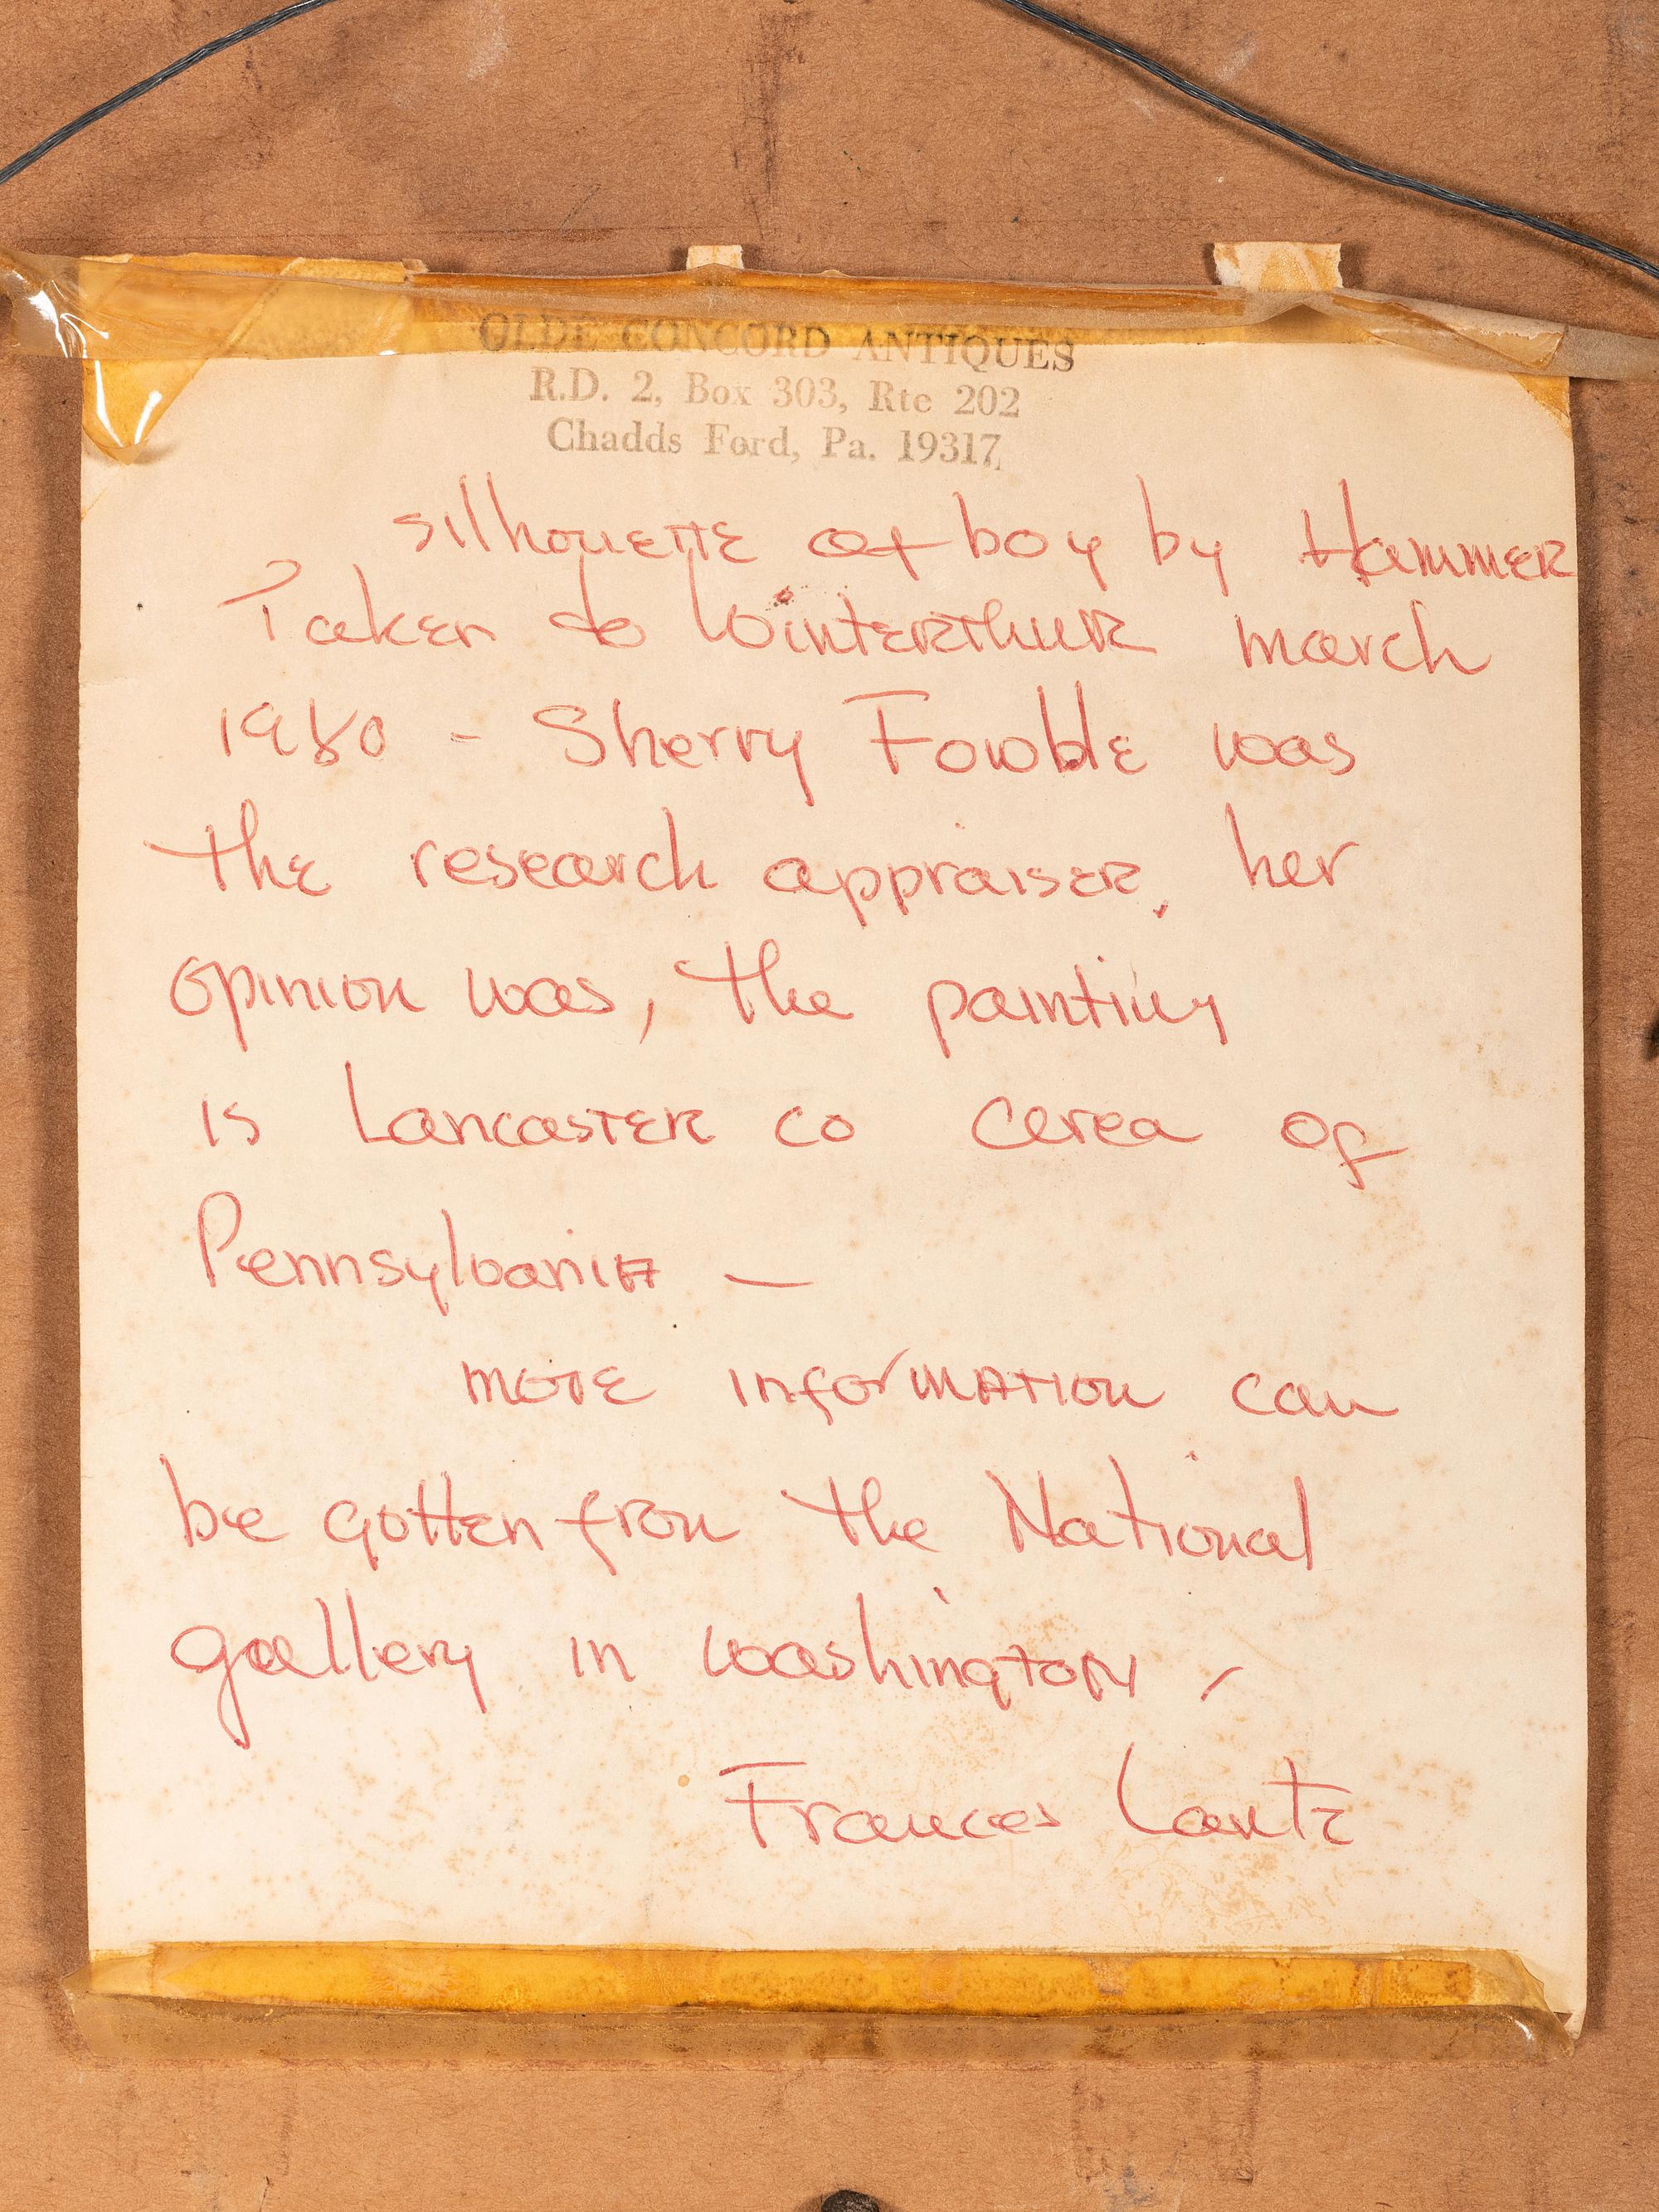 OLDE CONCORD ANTIQUES
R.D. 2, Box 303, Rte 202
Chadds Ford, Pa. 19317
silhouette of boy by Hammer
Taken to Winterthur march
1980 - Sherry Fowble was
the research appraiser, her
opinion was, the painting
is Lancaster co area of
Pennsylvania —
more information can
be gotten from the National
gallery in washington -
Frances Lantz